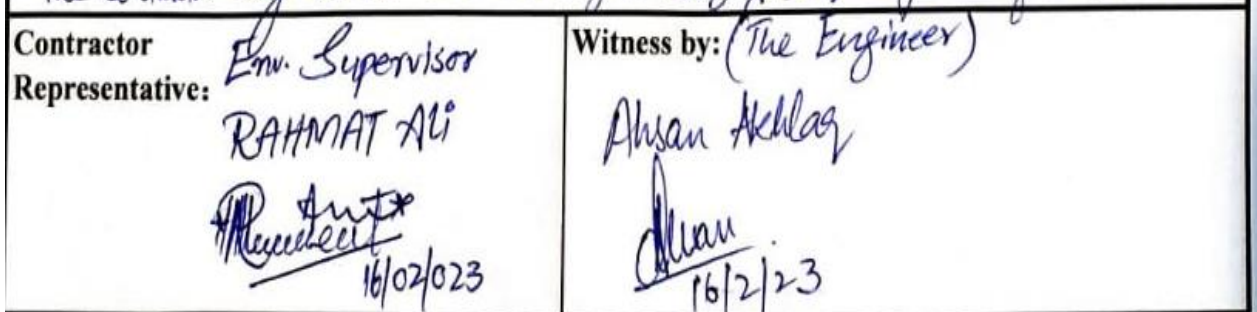 Contractor Representative: Env. Supervisor
RAHMAT Ali
16/02/023
Witness by: (The Engineer)
Ahsan Akhlaq
Ahsan
16/2/23